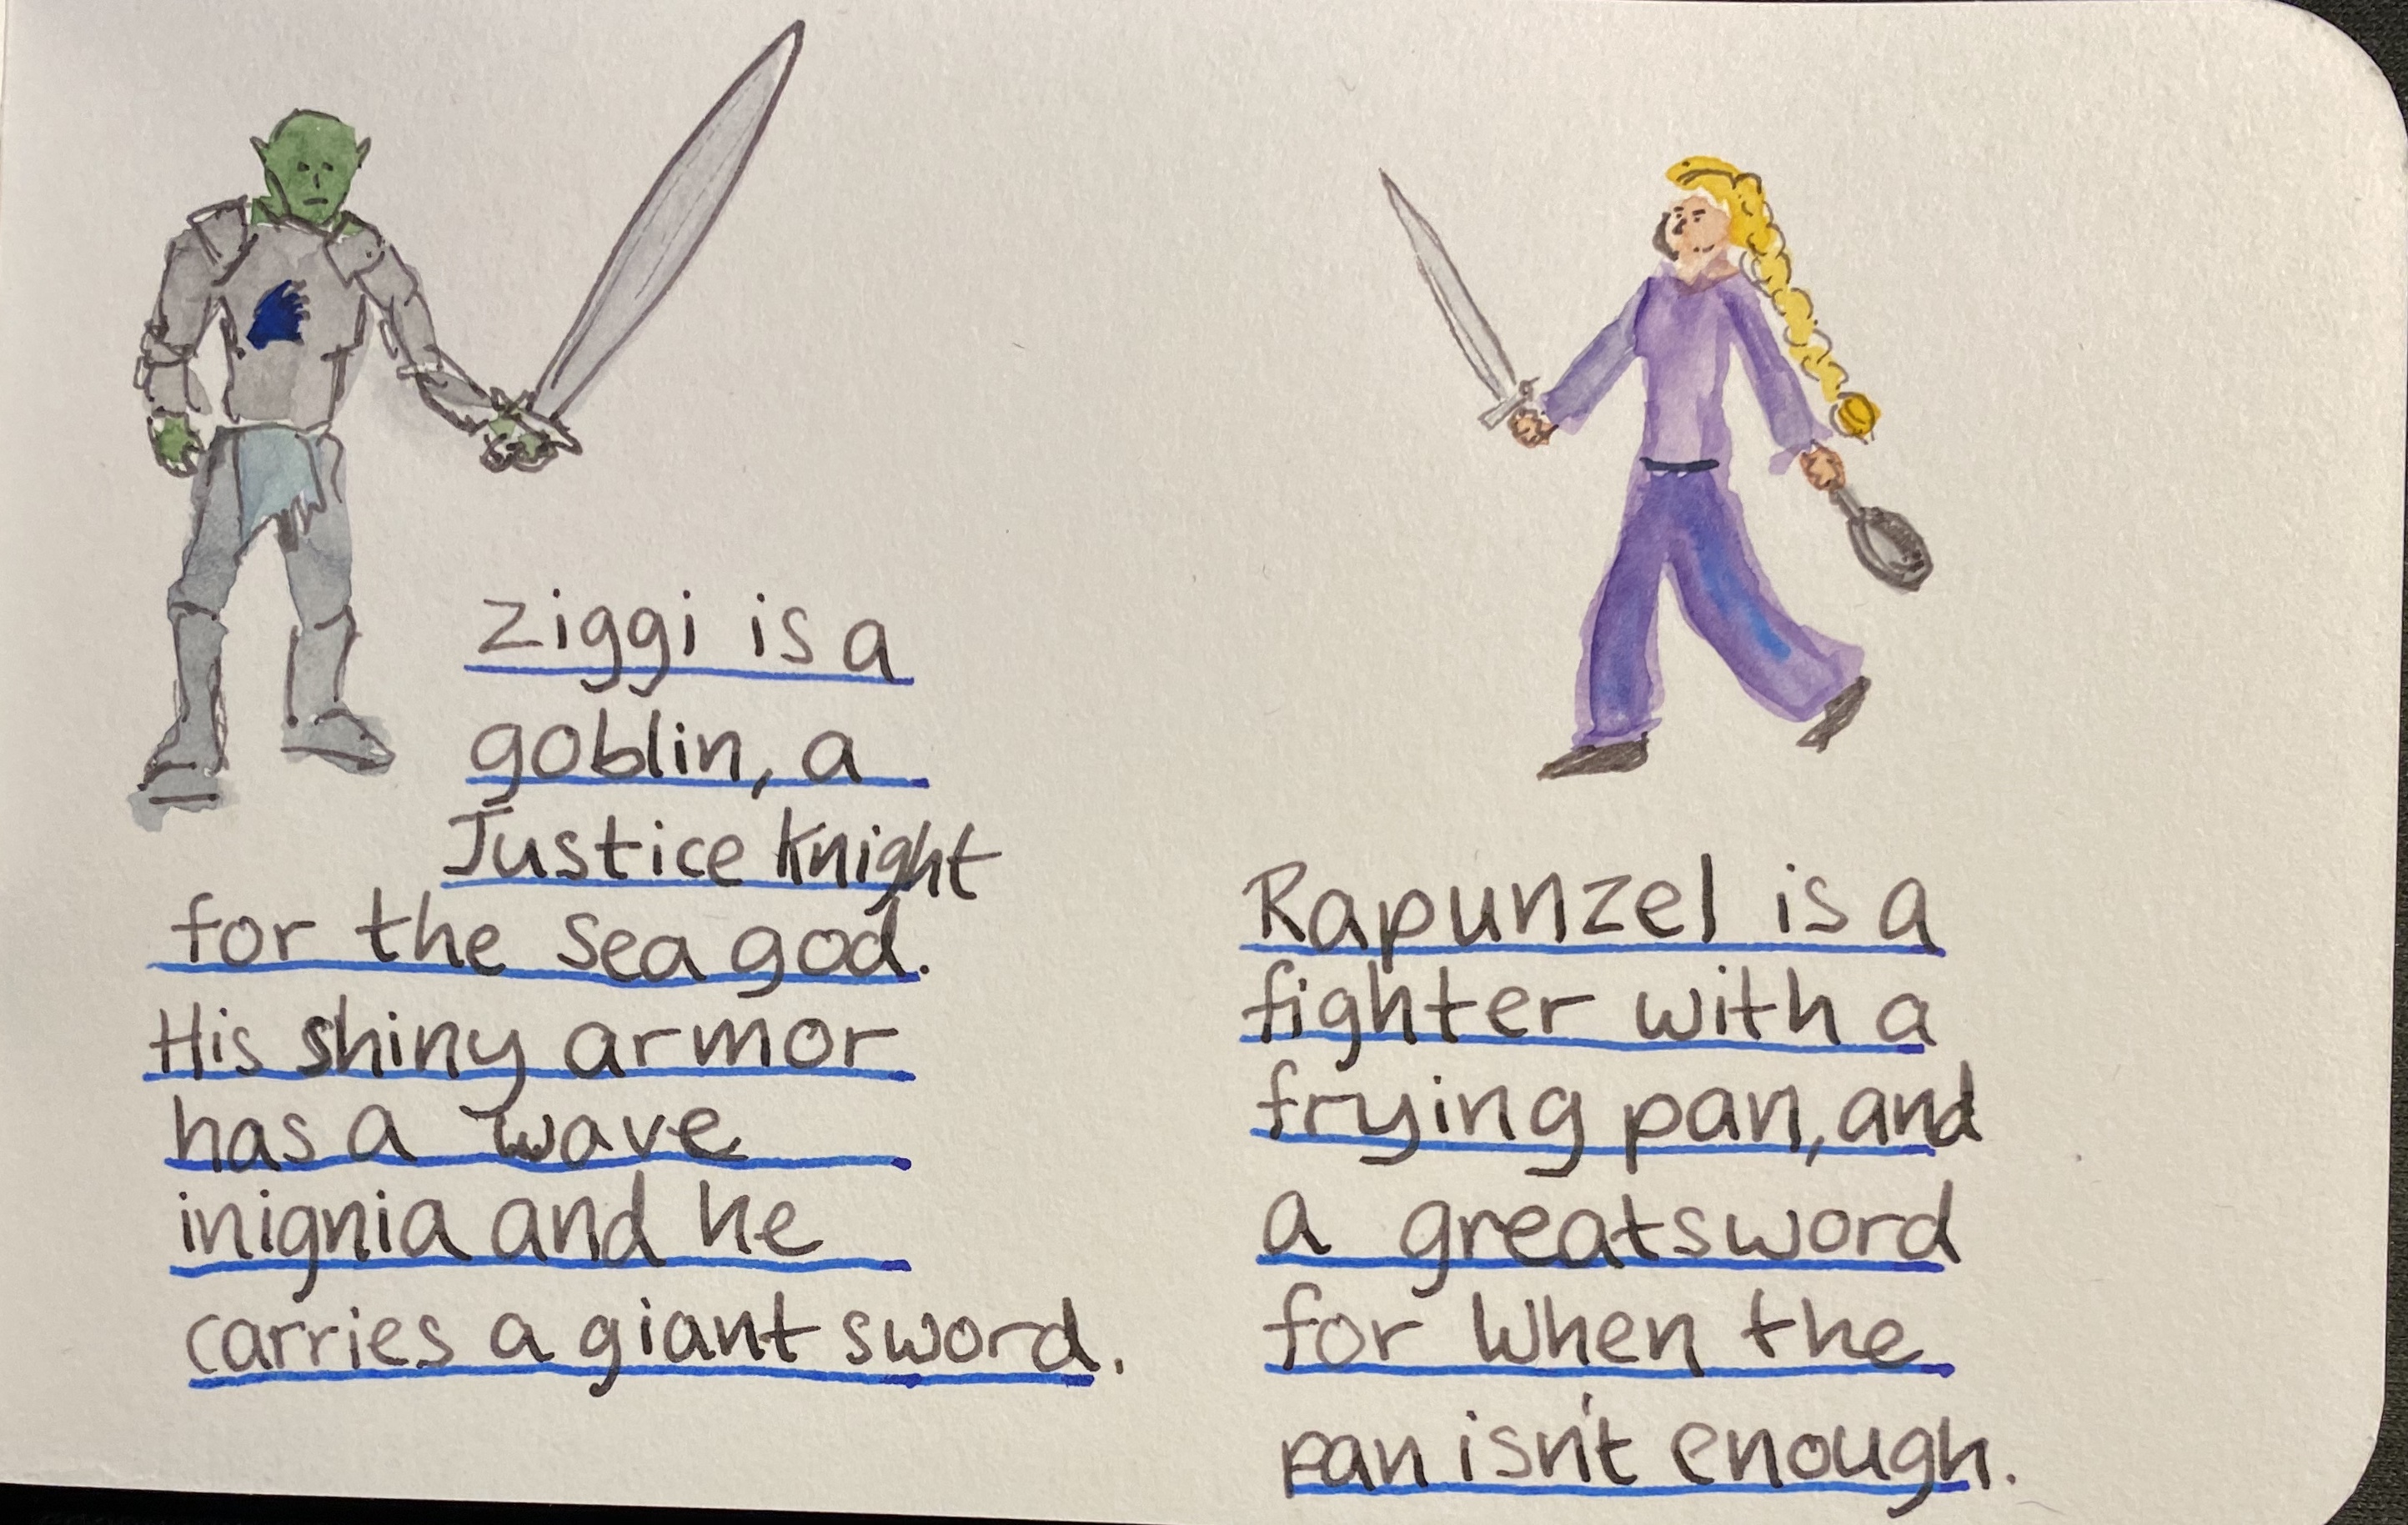 Ziggi is a
goblin, a
Justice Knight
for the sea god.
His shiny armor
has a wave
inignia and he
carries a giant sword.
Rapunzel is a
fighter with a
frying pan, and
a greatsword
for when the
pan isn't enough.